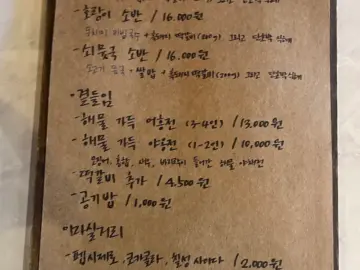 - 호랑이 소반 / 16,000원
- 쇠뭇국 소반 / 16,000원
· 곁들임
- 해물 가득 어흥전 (3-4인) / 13,000원
- 해물 가득 야옹전 (1-2인) / 10,000원
- 떡갈비 추가 / 4,500원
- 공기밥 / 1,000원
· 마실거리
- 펩시제로, 코카콜라, 칠성사이다 / 2,000원